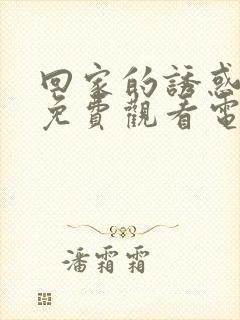 回家的誘惑
免費觀看電
潘霜霜